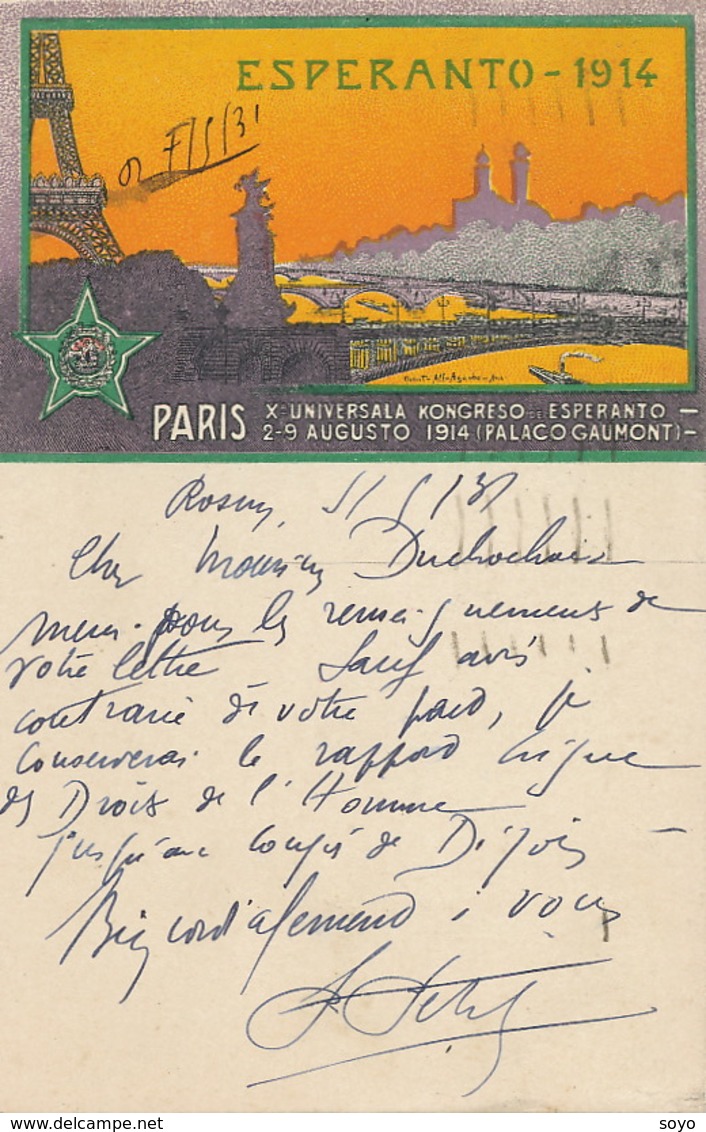 ESPERANTO - 1914
7/5/31
PARIS Xª UNIVERSALA KONGRESO DE ESPERANTO —
2-9 AUGUSTO 1914 (PALACO GAUMONT) -
5/5/31
Cher Monsieur Duchochois
merci pour les renseignements de
votre lettre Sauf avis
contraire de votre part, je
conserverai le rapport Ligue
des Droits de l'Homme
jusqu'au congrès de Dijon —
Bien cordialement à vous
soyo